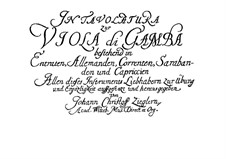 INTAVOLATURA
zur
VIOLA di GAMBA
bestehend in
Entreen, Allemanden, Correnten, Saraban-
den und Capricien
Allen dieses Instruments Liebhabern zur Übung
und Ergötzligkeit auffgesetzt und herausgegeben
von
Johann Christoff Zieglern,
Acad. Witteb. Mus. Direct. et Org.